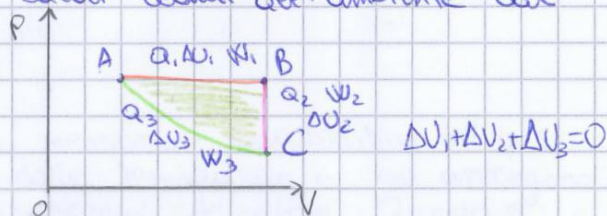 P
A Q₁ΔU₁ W₁ B
Q₂ W₂
ΔU₂
Q₃
ΔU₃
W₃
C
ΔU₁+ΔU₂+ΔU₃=0
O
V